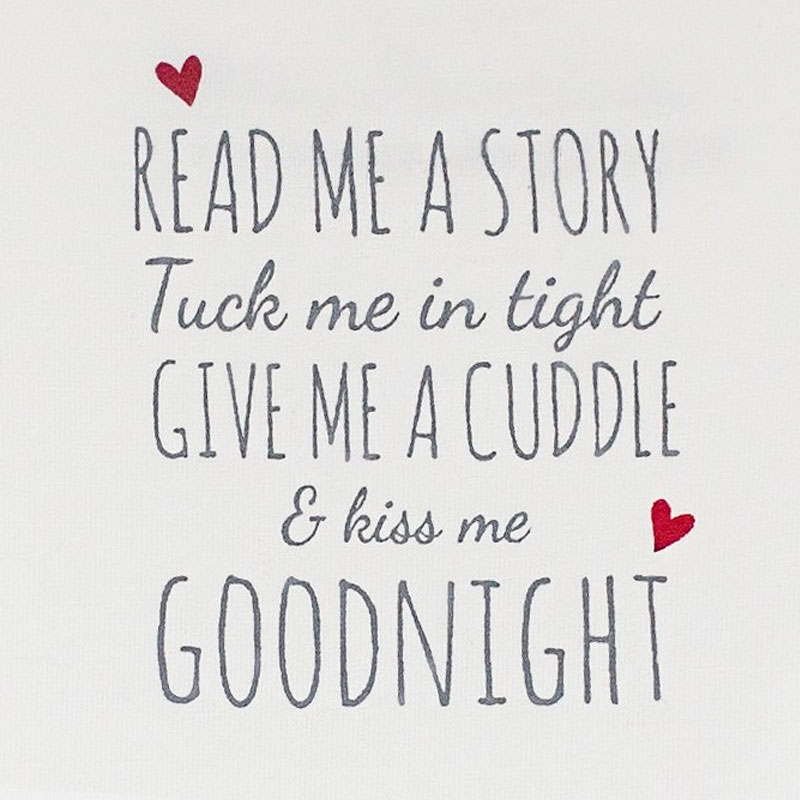 READ ME A STORY
Tuck me in tight
GIVE ME A CUDDLE
& kiss me
GOODNIGHT